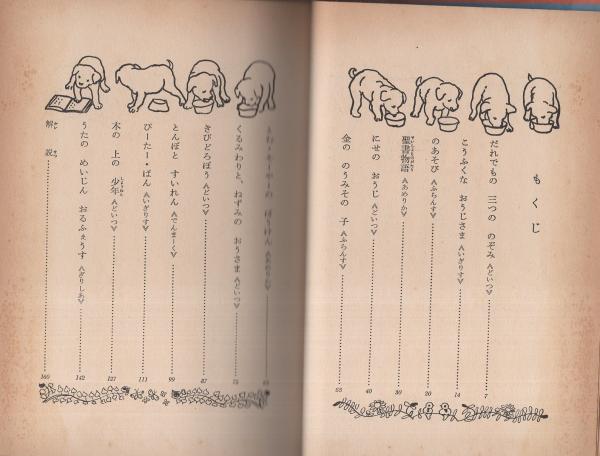 もくじ
だれでもの 三つの のぞみ〈どいつ〉 7
こうふくな おうじさま〈いぎりす〉 14
のあそび〈ふらんす〉 20
聖書物語〈あめりか〉 30
にせの おうじ〈どいつ〉 40
金の のうみその 子〈ふらんす〉 55
ぼうけん〈あめりか〉
くるみわりと、ねずみの おうさま〈どいつ〉 75
きびどろぼう〈どいつ〉 87
とんぼと すいれん〈でんまーく〉 99
ぴーたー・ぱん〈いぎりす〉 111
木の 上の 少年〈どいつ〉 127
うたの めいじん おるふぇうす〈ぎりしあ〉 142
解説 160